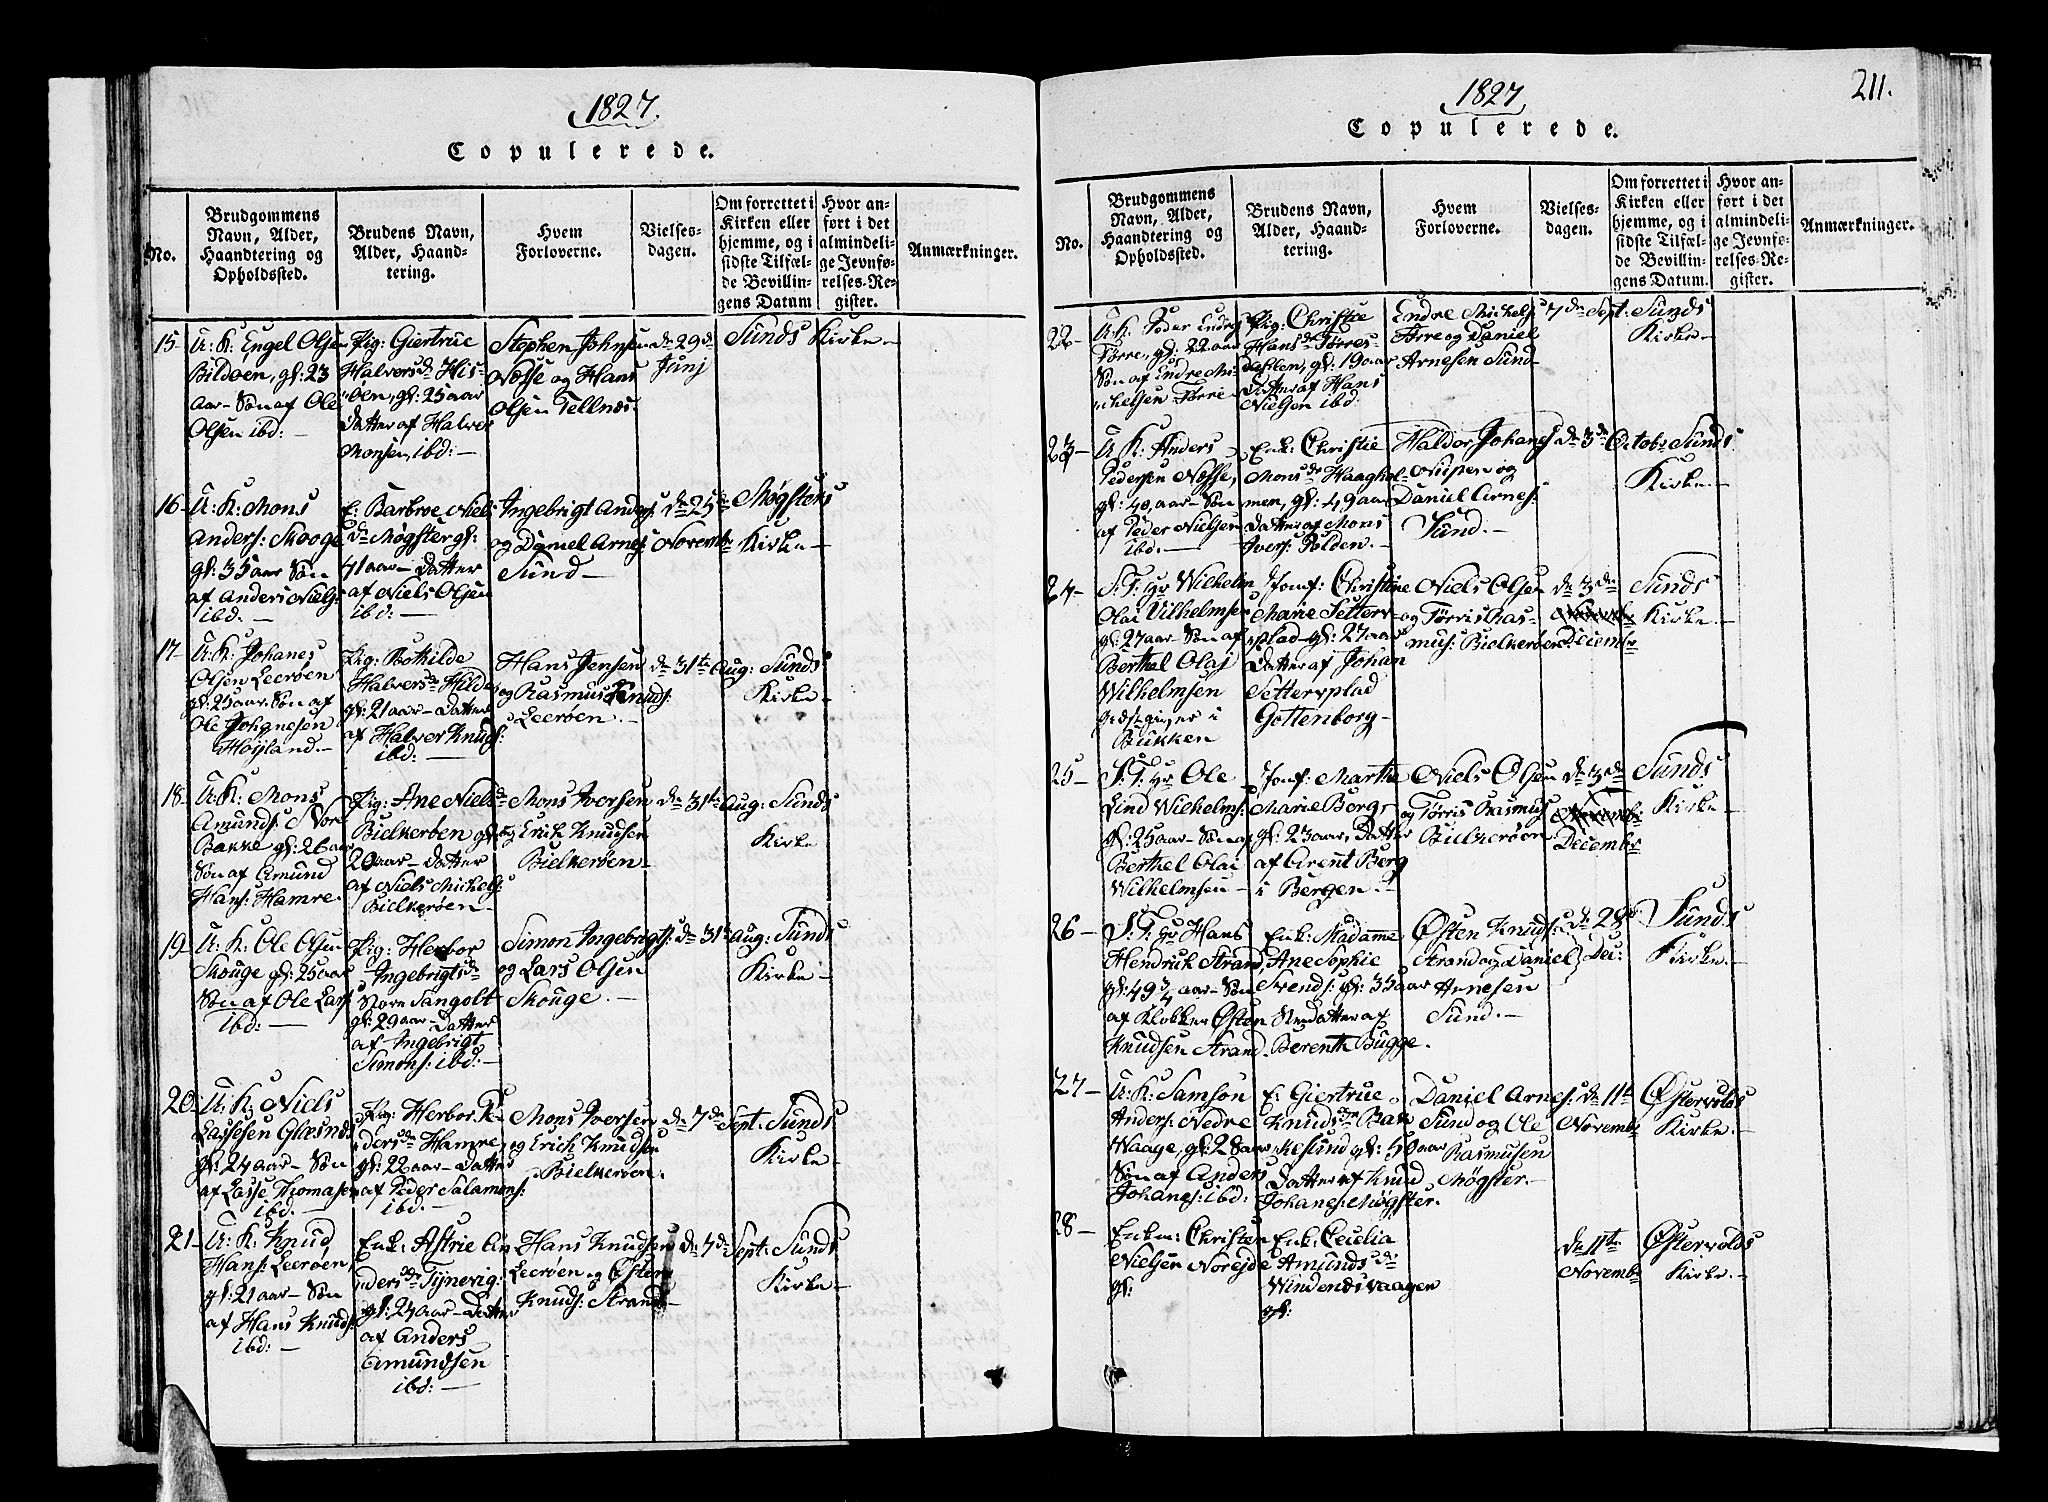 1827
Copulerede.
No.
Brudgommens
Navn, Alder,
Haandtering og
Opholdssted.
Brudens Navn,
Alder, Haand-
tering.
Hvem
Forloverne.
Vielses-
dagen.
Om forrettet i
Kirken eller
hjemme, og i
sidste Tilfæl-
de Bevillin-
gens Datum
Hvor an-
ført i det
almindeli-
ge Jevnfø-
relses-Re-
gister.
Anmærkninger.
15
U: K: Engel Olsen
Bildøen, gl: 23
aar - Søn af Ole
Olsen ibd: -
Pig: Giertrue
Halversd
gl: 25 aar
Datter af Halver
Monsen, ibd: -
Stephen Johnsen
Nosse og Hans
Olsen Tellnæs.
dn 29d
Junj
Sunds Kirke -
16
U: K: Mons
Anders: Skoge
gl: 35 aar Søn
af Anders Niels:
ibd. -
E: Barbroe Niels
dr Møgster gl:
41 aar - Datter
af Niels Olsen
ibd: -
Ingebrigt Anders:
og Daniel Arnes:
Sund -
dn 25de
Novembr
Møgsters
Kirke -
17
U: K: Johanes
Olsen Leerøen
gl: 25 aar. Søn af
Ole Johanesen
Høyland. -
Pig: Bothilde
Halversd Hilde
gl: 21 aar - Datter
af Halver Knuds:
ibd: -
Hans Jensen
og Rasmus Knuds:
Leerøen. -
dn 31te Aug:
Sunds
Kirke -
18
U: K: Mons
Amunds:
Bakke gl: 26 aar
Søn af Amund
Hans: Hamre -
Pig: Ane Nielsd
Bielkerøen gl:
20 aar - Datter
af Niels Michels:
Bielkerøen -
Mons Iversen
og Erick Knudsen
Bielkerøen -
dn 31te Aug:
Sunds
Kirke
19
U: K: Ole Olsen
Skouge gl: 25 aar
Søn af Ole Lars:
ibd: -
Pig: Herbor
Ingebrigtsdr
Store Sangolt
gl: 29 aar - Datter
af Ingebrigt
Simons: ibd: -
Simon Ingebrigts:
og Lars Olsen
Skouge. -
dn 31te Aug:
Sunds
Kirke -
20
U: K: Niels
Lassesen Glæsnæs
gl: 24 aar - Søn
af Lasse Thomasen
ibd. -
Pig: Herbor Pe-
dersdr Hamre
gl: 22 aar - Datter
af Peder Salamons:
ibd. -
Mons Iversen
og Erick Knudsen
Bielkerøen.
dn 7de Sept:
Sunds
Kirke -
21
U: K: Knud
Hans: Leerøen,
gl: 21 aar - Søn
af Hans Knuds:
ibd: -
Enk: Astrie An-
dersdr Tynevig
gl: 24 aar - Datter
af Anders
Amundsen
ibd: -
Hans Knudsen
Leerøen og Østen
Knuds: Strand -
dn 7de Sept:
Sunds
Kirke -
1827
211.
Copulerede.
No.
Brudgommens
Navn, Alder,
Haandtering og
Opholdssted.
Brudens Navn,
Alder, Haand-
tering.
Hvem
Forloverne.
Vielses-
dagen.
Om forrettet i
Kirken eller
hjemme, og i
sidste Tilfæl-
de Bevillin-
gens Datum.
Hvor an-
ført i det
almindeli-
ge Jevnfø-
relses-Re-
gister.
Anmærkninger.
22
U: K: Peder Endres:
Førre, gl: 22 aar
Søn af Endre Mi-
chelsen Førre
Pig: Christie
Hansdr Førres-
dahlen, gl: 19 aar
Datter af Hans
Nielsen ibd:
Endre Michels:
Førre og Daniel
Arnesen Sund
7de Sept:
Sunds
Kirke -
23
U: K: Anders
Pedersen Nosse,
gl: 40, aar - Søn
af Peder Nielsen
ibd. -
Enk: Christie
Monsdr Haaghol-
men, gl: 49 aar
Datter af Mons
Ivers: Polden. -
Halder Johanes:
og
Daniel Arnes:
Sund. -
dn 3de Octobr
Sunds
Kirke -
24
S: T: Hr Wilhelm
Olai Wilhelmsen
gl: 27 aar - Søn af
Berthel Olaj
Wilhelmsen
Gæstgiver i
Bukken
Jomf: Christine
Marie Setters-
plad - gl: 27 aar
Datter af Johan
Settersplad
Gottenborg -
Niels Olsen
og Tørris Ras-
mus: Bielkerøen
dn 3de
Decembr
Sunds
Kirke -
25
S: T: Hr Ole
Lind Wilhelms:
gl: 25 aar - Søn af
Berthel Olai
Wilhelmsen -
Jomf: Marthe
Marie Berg
gl: 23 aar, Datter
af Arent Berg
i Bergen. -
Niels Olsen
og Tørris Rasmus:
Bielkerøen
dn 3de
Decembr
Sunds
Kirke -
26
S: T: Hr Hans
Hendrick Strand
gl: 49 3/4 aar - Søn
af Klokker Østen
Knudsen Strand.
Enk: Madamme
Ane Sophie
gl: 35 aar
Datter af
Berenth Bugge.
Østen Knuds:
Strand og Daniel
Arnesen
Sund. -
dn 28de
Dec:
Sunds
Kirke -
27
U: K: Samson
Anders: Nedre
Waage, gl: 28 aar
Søn af Anders
Johanes: ibd:
E: Giertrue
Knudsdr Bak-
kesund gl: 50 aar
Datter af Knud
Johanes: Møgster.
Daniel Arnes:
Sund og Ole
Rasmusen
Møgster. -
dn 11te
Novembr
Østervolds
Kirke. -
28
Enkm: Christen
Nielsen Norejde
gl:
Enk: Cecelia
Amundsdr
Windenæsvaagen
gl:
dn 11te
Novembr
Østervolds
Kirke. -